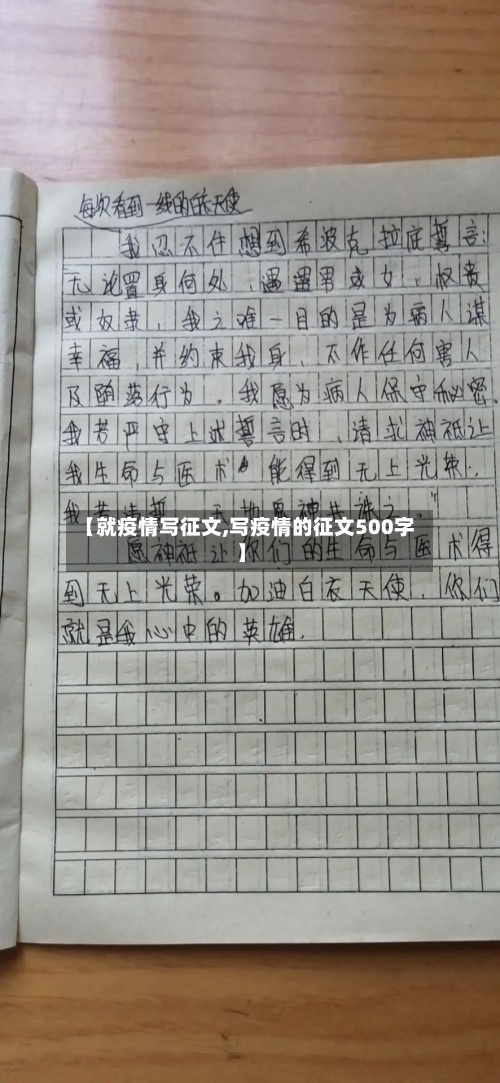 每次看到一线的白衣天使
我忍不住想到希波克拉底誓言:
无论置身何处,遇男或女,权贵
或奴隶,我之唯一目的是为病人谋
幸福,并约束我身,不作任何害人
及堕落行为。我愿为病人保守秘密.
我若严守上述誓言时,请求神祇让
我生命与医术能得到无上光荣;
我若违誓
【就疫情写征文,写疫情的征文500字
】
愿神祇让你们的生命与医术得
到无上光荣。加油白衣天使,你们
就是我心中的英雄.